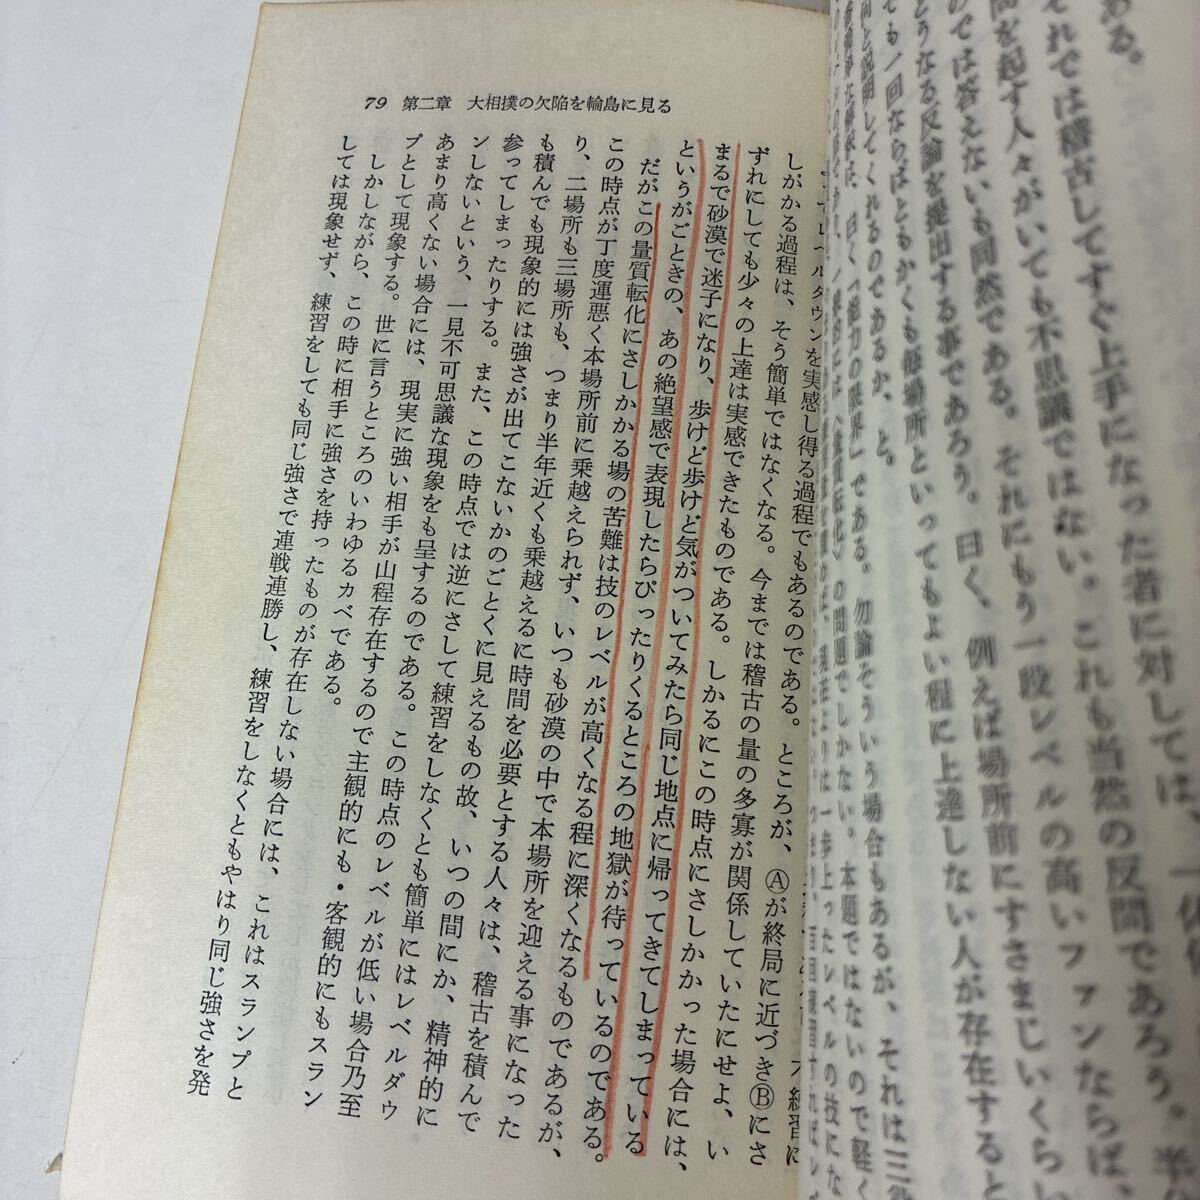 ある。
それでは稽古してすぐ上手になった者に対しては、一体
問を起す人々がいても不思議ではない。これも当然の反問であろう。
のでは答えないも同然である。それにもう一段レベルの高いファンならば、
どうなる反論を提出する事であろう。曰く、例えば場所前にすさまじいくらい
ても一回ならばともかくも毎場所といってもよい程に上達しない人が存在すると
何と説明してくれるのであるか、と。
曰く「能力の限界」である。勿論そういう場合もあるが、それは三役
の問題でしかない。本題ではないので軽く
79 第二章 大相撲の欠陥を輪島に見る
レベルダウンを実感し得る過程でもあるのである。ところが、Ⓐが終局に近づきⒷにさ
しがかる過程は、そう簡単ではなくなる。今までは稽古の量の多寡が関係していたにせよ、い
ずれにしても少々の上達は実感できたものである。しかるにこの時点にさしかかった場合には、
まるで砂漠で迷子になり、歩けど歩けど気がついてみたら同じ地点に帰ってきてしまっている
というがごときの、あの絶望感で表現したらぴったりくるところの地獄が待っているのである。
だがこの量質転化にさしかかる場の苦難は技のレベルが高くなる程に深くなるものであるが、
この時点が丁度運悪く本場所前に乗越えられず、いつも砂漠の中で本場所を迎える事になった
り、二場所も三場所も、つまり半年近くも乗越えるに時間を必要とする人々は、稽古を積んで
も積んでも現象的には強さが出てこないかのごとくに見えるもの故、いつの間にか、精神的に
参ってしまったりする。また、この時点では逆にさして練習をしなくとも簡単にはレベルダウ
ンしないという、一見不可思議な現象をも呈するのである。この時点のレベルが低い場合乃至
あまり高くない場合には、現実に強い相手が山程存在するので主観的にも・客観的にもスラン
プとして現象する。世に言うところのいわゆるカベである。
しかしながら、この時に相手に強さを持ったものが存在しない場合には、これはスランプと
しては現象せず、練習をしても同じ強さで連戦連勝し、練習をしなくともやはり同じ強さを発